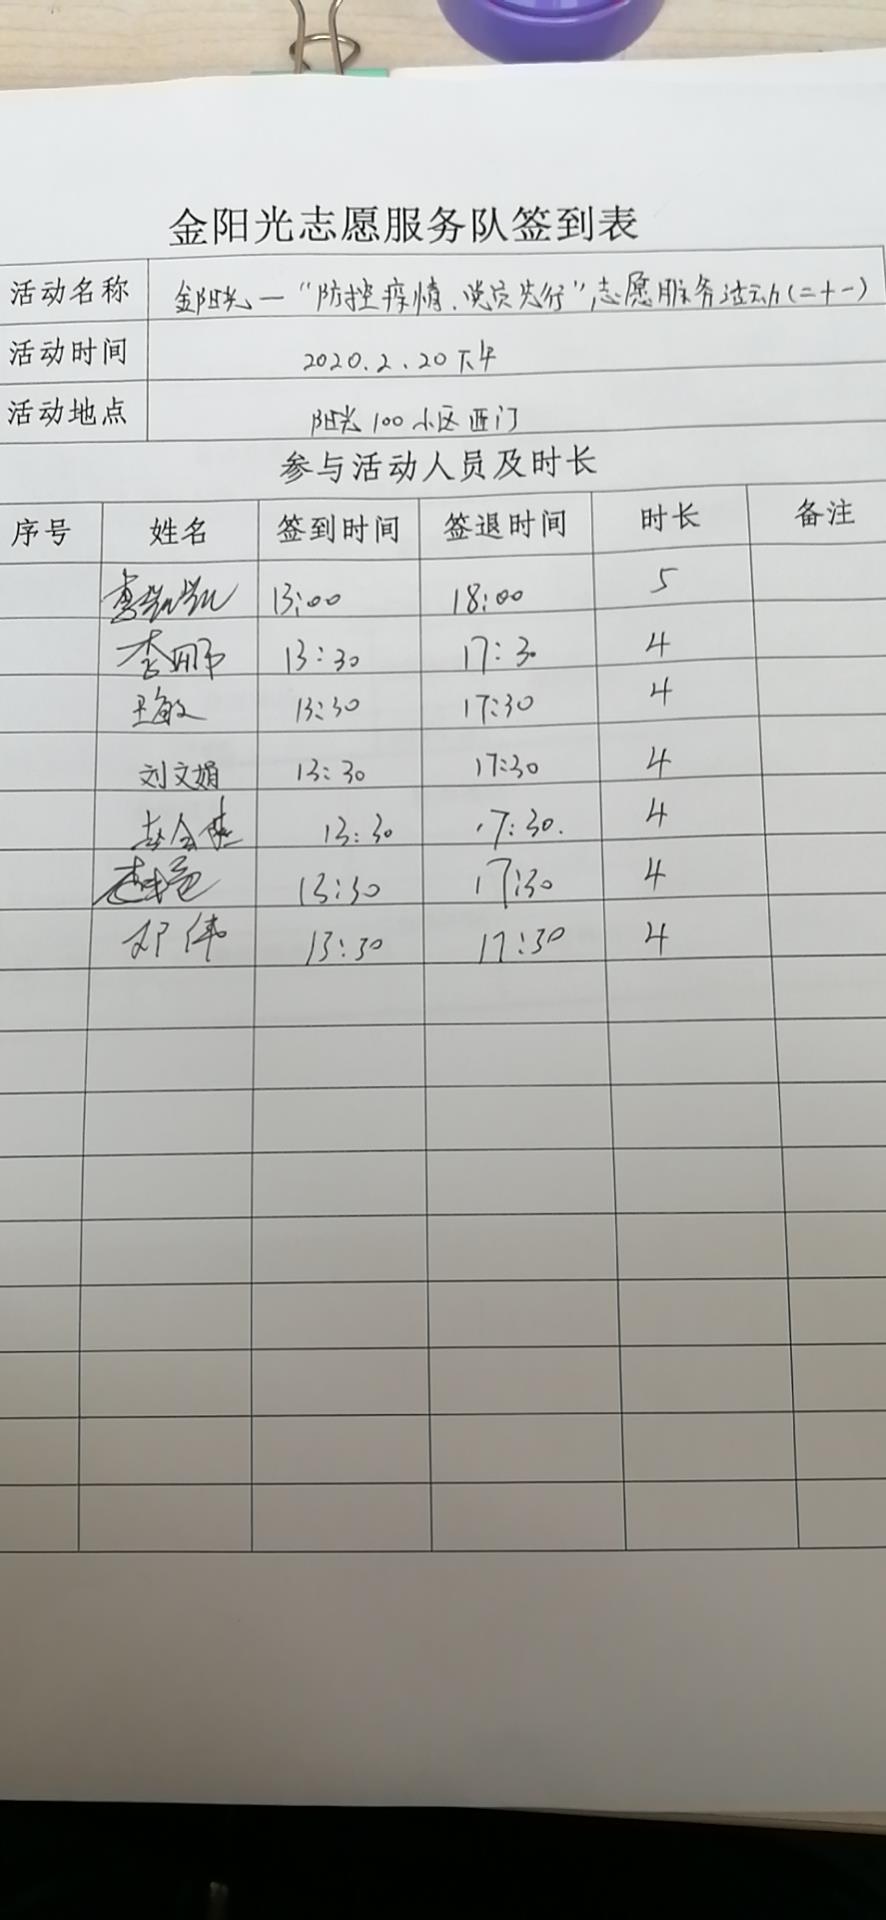 金阳光志愿服务队签到表
活动名称 金阳光一“防控疫情、党员先行”志愿服务活动(二十一)
活动时间 2020.2.20下午
活动地点 阳光100小区西门
参与活动人员及时长
序号 姓名 签到时间 签退时间 时长 备注
13:00 18:00 5
李娜 13:30 17:30 4
王敏 13:30 17:30 4
刘文娟 13:30 17:30 4
13:30 17:30. 4
13:30 17:30 4
邓伟 13:30 17:30 4